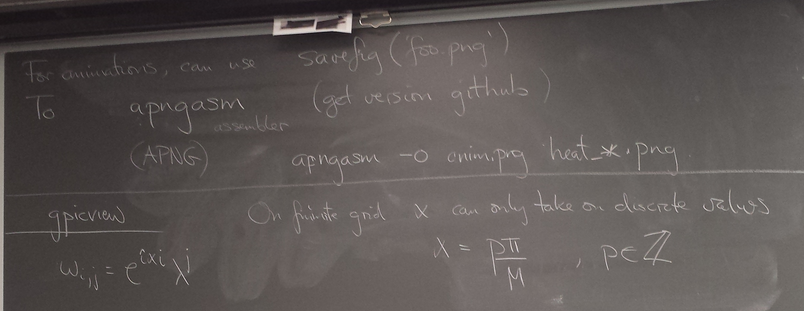 For animations, can use savefig('foo.png')
To apngasm (get version github)
assembler
(APNG) apngasm -o anim.png heat_*.png
gpicview On finite grid X can only take on discrete values
w_{i,j} = e^{iXi} λ^j X = pπ/M , p∈ℤ